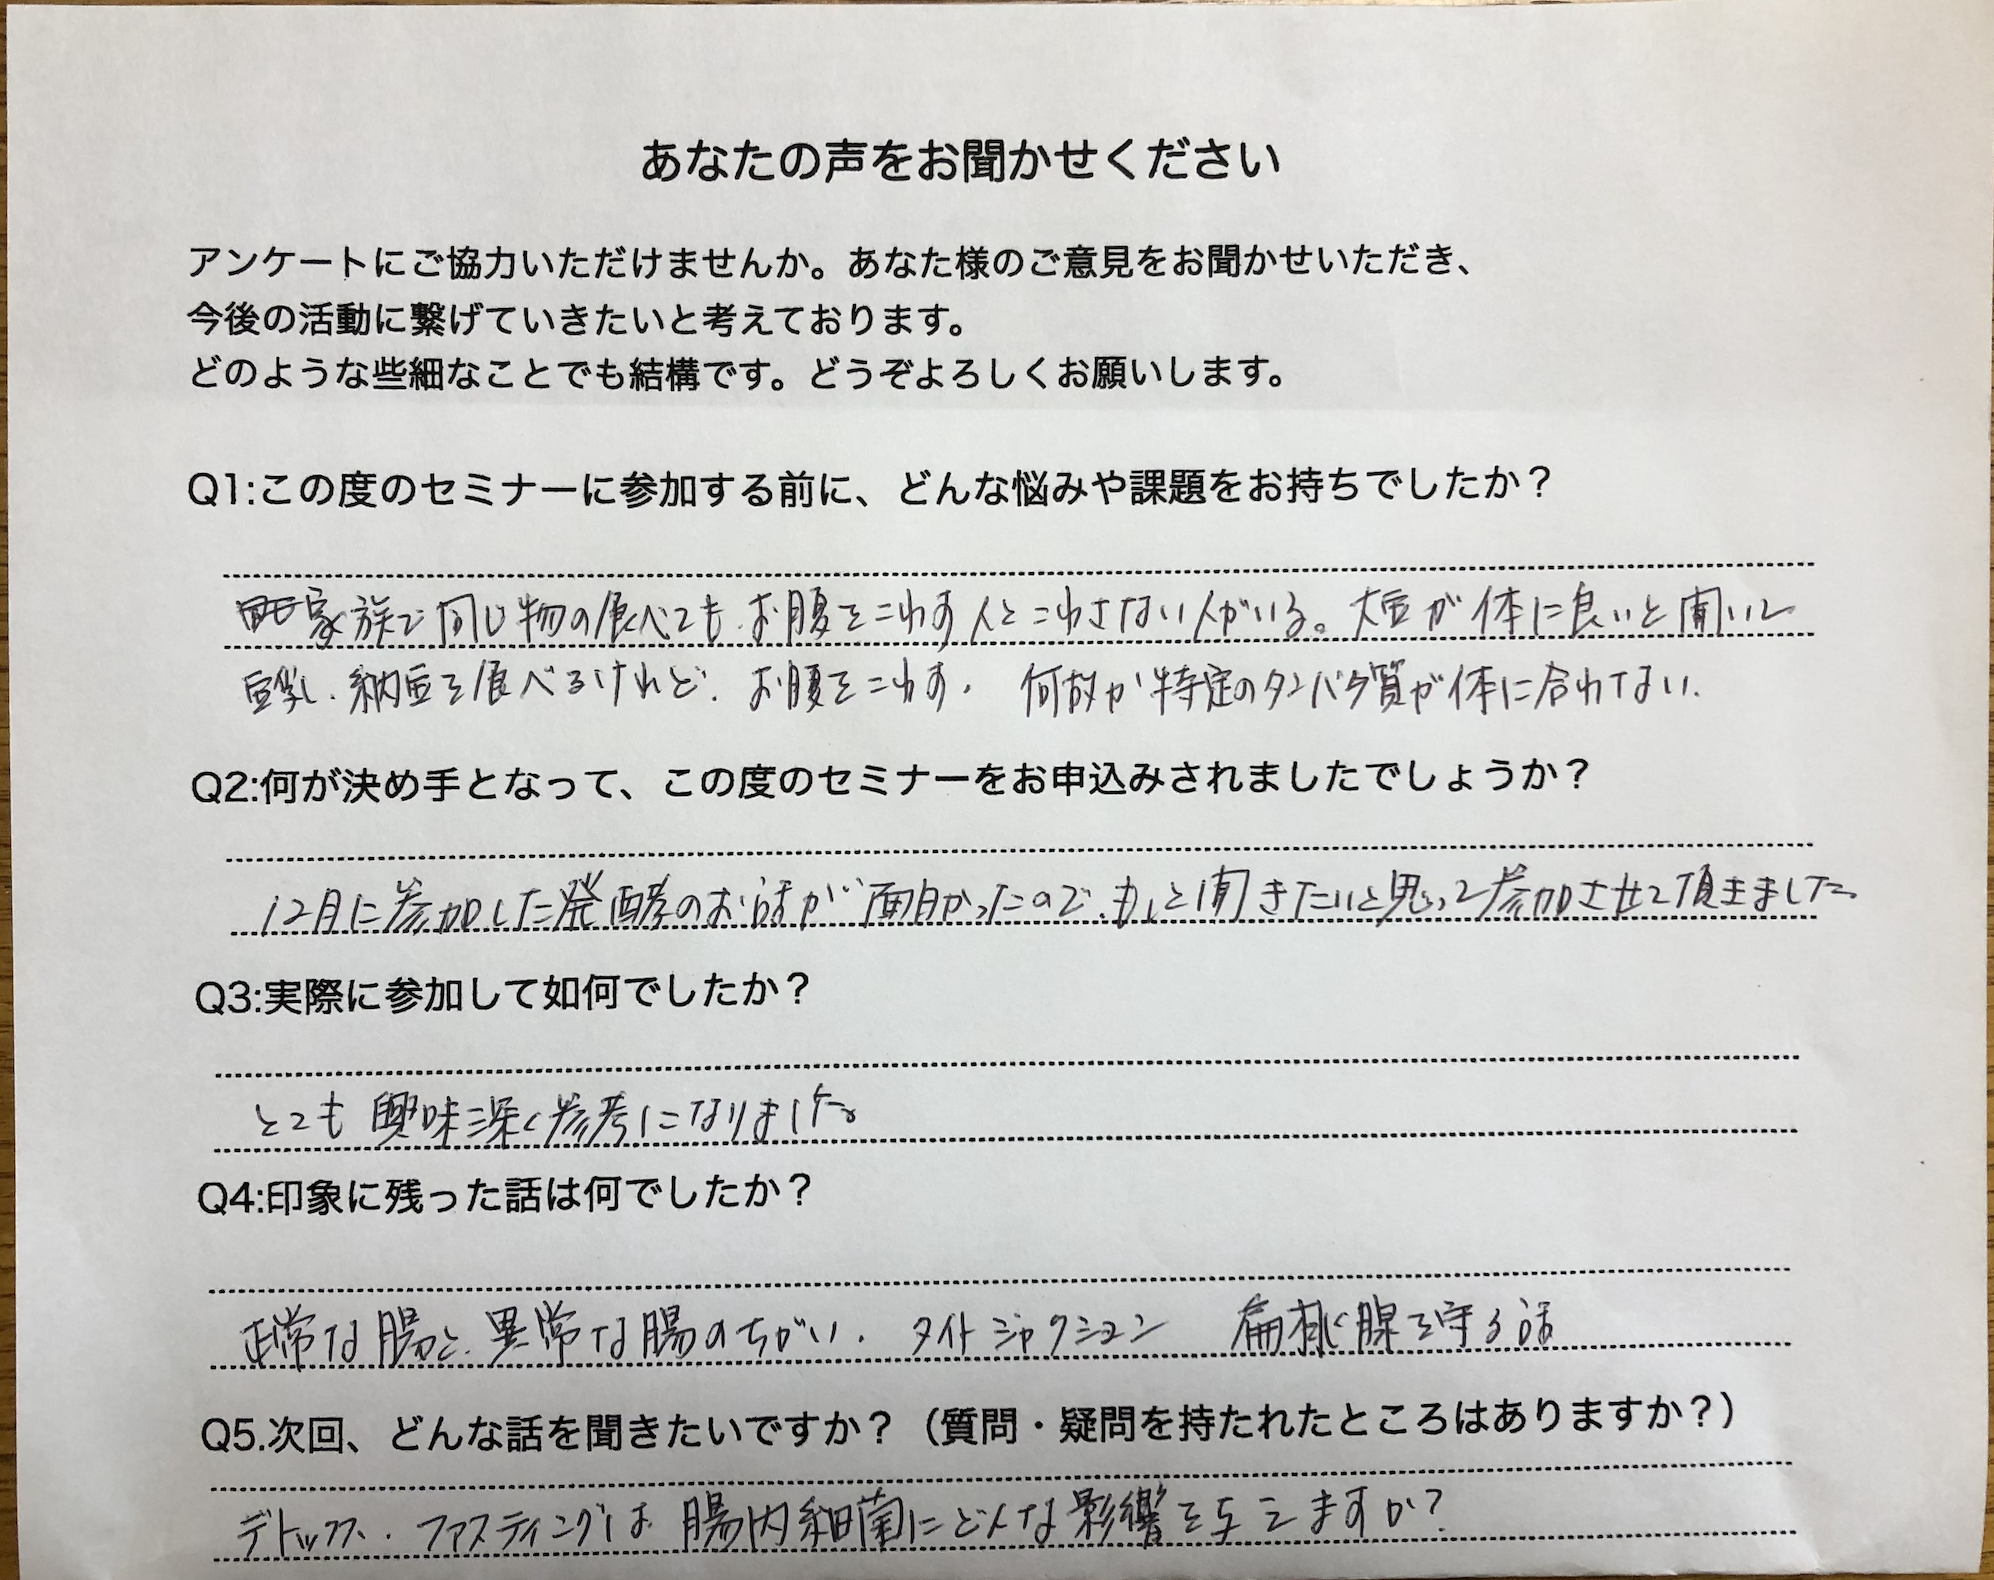 あなたの声をお聞かせください
アンケートにご協力いただけませんか。あなた様のご意見をお聞かせいただき、
今後の活動に繋げていきたいと考えております。
どのような些細なことでも結構です。どうぞよろしくお願いします。
Q1:この度のセミナーに参加する前に、どんな悩みや課題をお持ちでしたか？
家族で同じ物の食べても、お腹をこわす人とこわさない人がいる。大豆が体に良いと聞いて
豆乳、納豆を食べるけれど、お腹をこわす。 何故か特定のタンパク質が体に合わない。
Q2:何が決め手となって、この度のセミナーをお申込みされましたでしょうか？
12月に参加した発酵のお話が面白かったので、もっと聞きたいと思って参加させて頂きました
Q3:実際に参加して如何でしたか？
とても興味深く参考になりました。
Q4:印象に残った話は何でしたか？
正常な腸と、異常な腸のちがい、 タイトジャクション 扁桃腺を守る話
Q5.次回、どんな話を聞きたいですか？（質問・疑問を持たれたところはありますか？）
デトックス、ファスティングは 腸内細菌にどんな影響を与えますか？